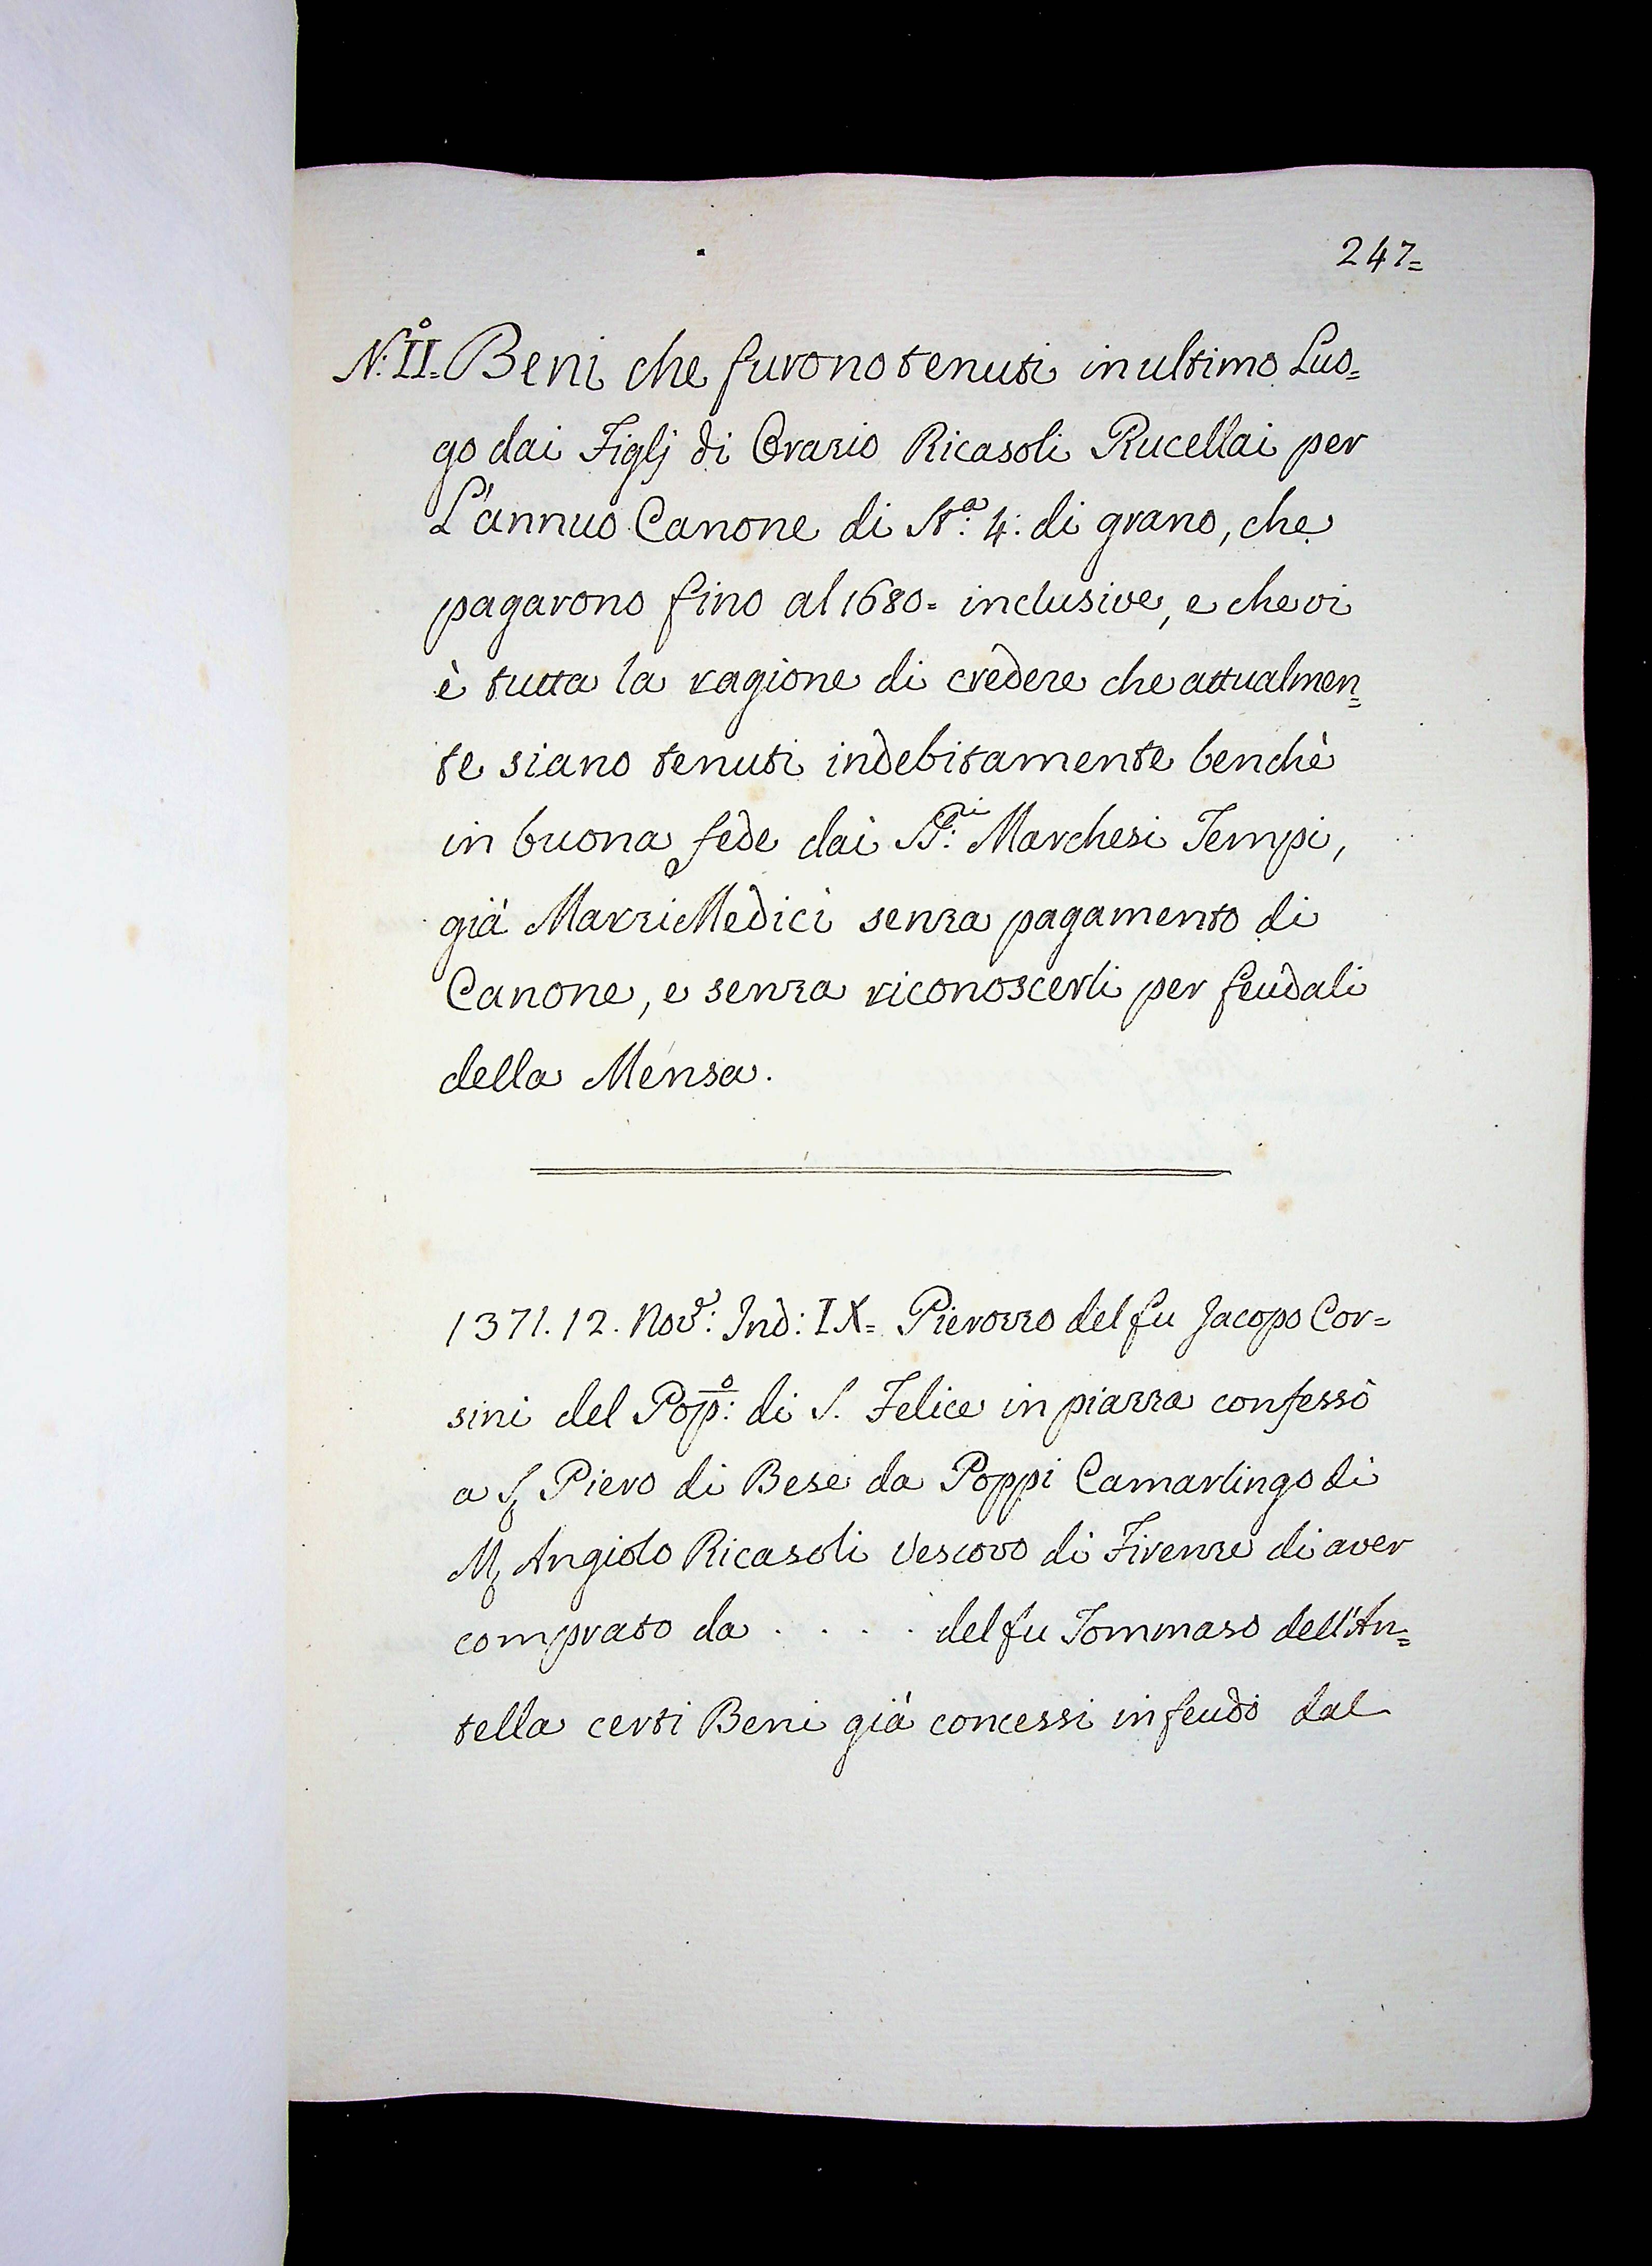 247=
N.º II. Beni che furono tenuti in ultimo Luo=
go dai Figlj di Orazio Ricasoli Rucellai per
L'annuo Canone di St.ª 4: di grano, che
pagarono fino al 1680= inclusive, e che vi
è tutta la ragione di credere che attualmen=
te siano tenuti indebitamente benchè
in buona fede dai SS:ri Marchesi Tempi,
già Marzi Medici senza pagamento di
Canone, e senza riconoscerli per feudali
della Mensa.
1371. 12. Nov.e: Ind: IX= Pierozzo del fu Jacopo Cor=
sini del Pop:º di S. Felice in piazza confessò
a S. Piero di Bese da Poppi Camarlingo di
M. Angiolo Ricasoli Vescovo di Firenze di aver
comprato da . . . . del fu Tommaso dell'An=
tella certi Beni già concessi in feudo dal